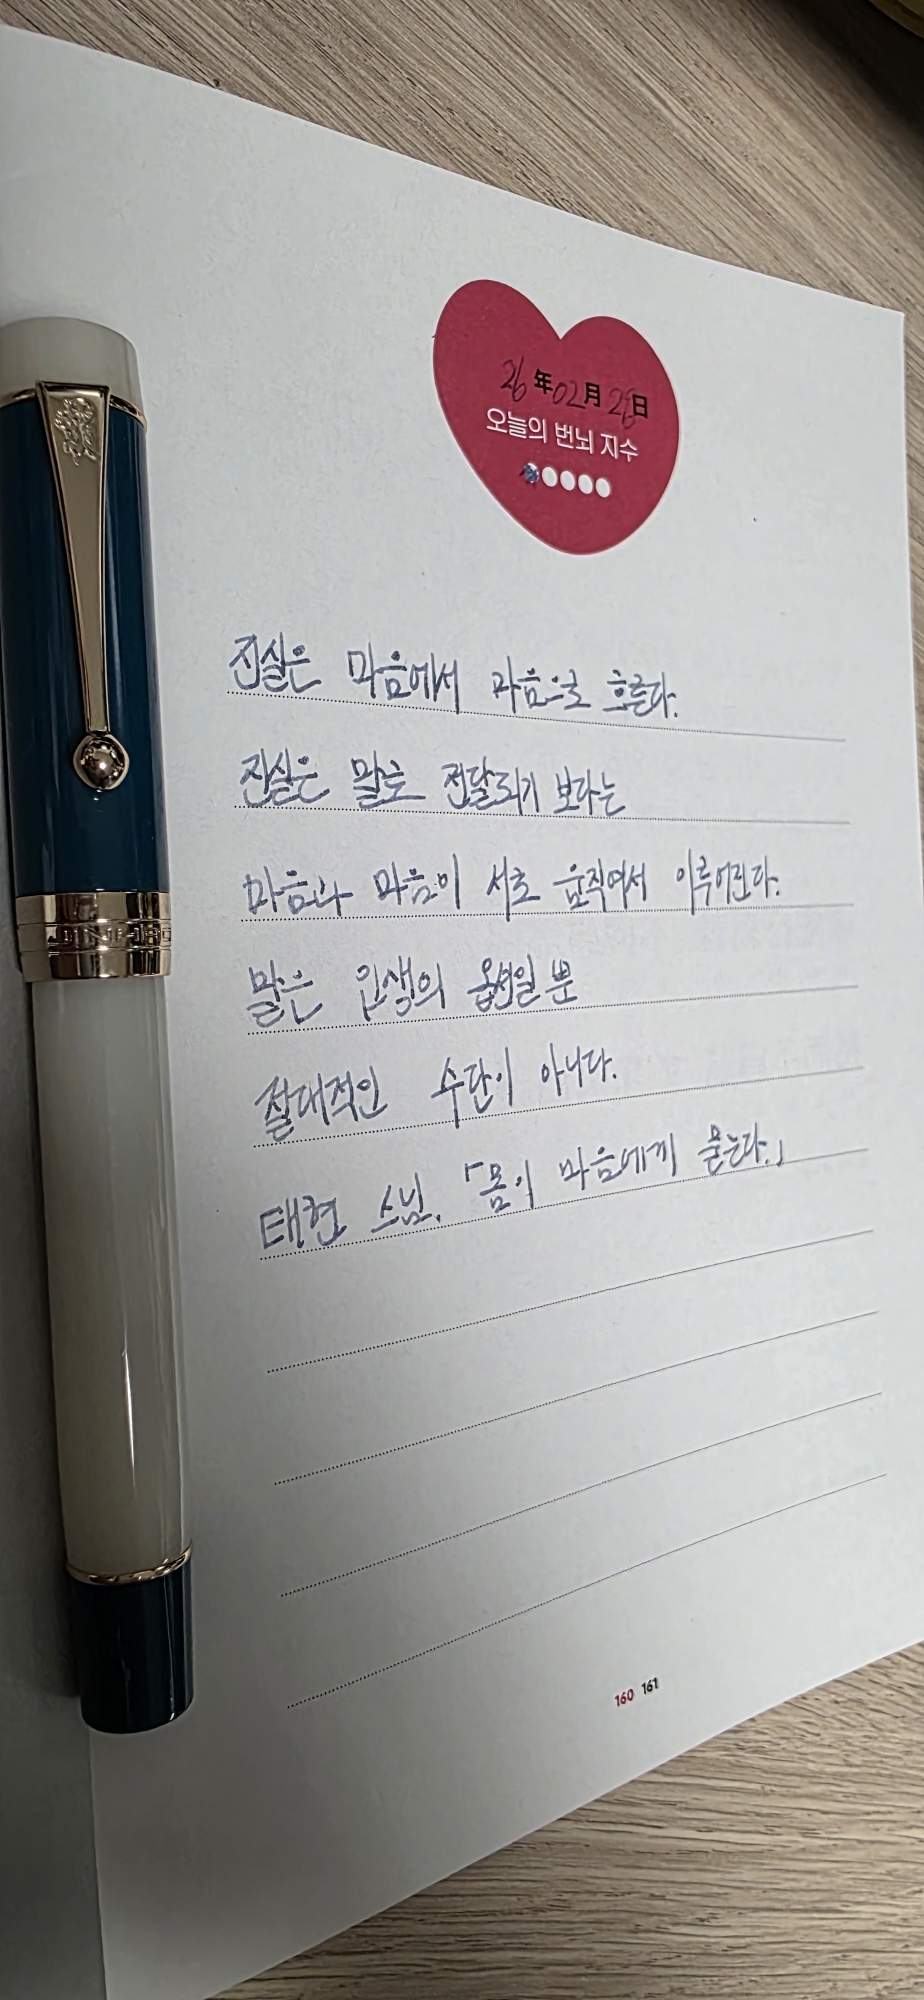 26年02月28日
오늘의 번뇌 지수
진실은 마음에서 마음으로 흐른다.
진실은 말로 전달되기 보다는
마음과 마음이 서로 움직여서 이루어진다.
말은 인생의 옵션일 뿐
절대적인 수단이 아니다.
태현 스님. 「몸이 마음에게 묻는다.」
160 161
JINHAO